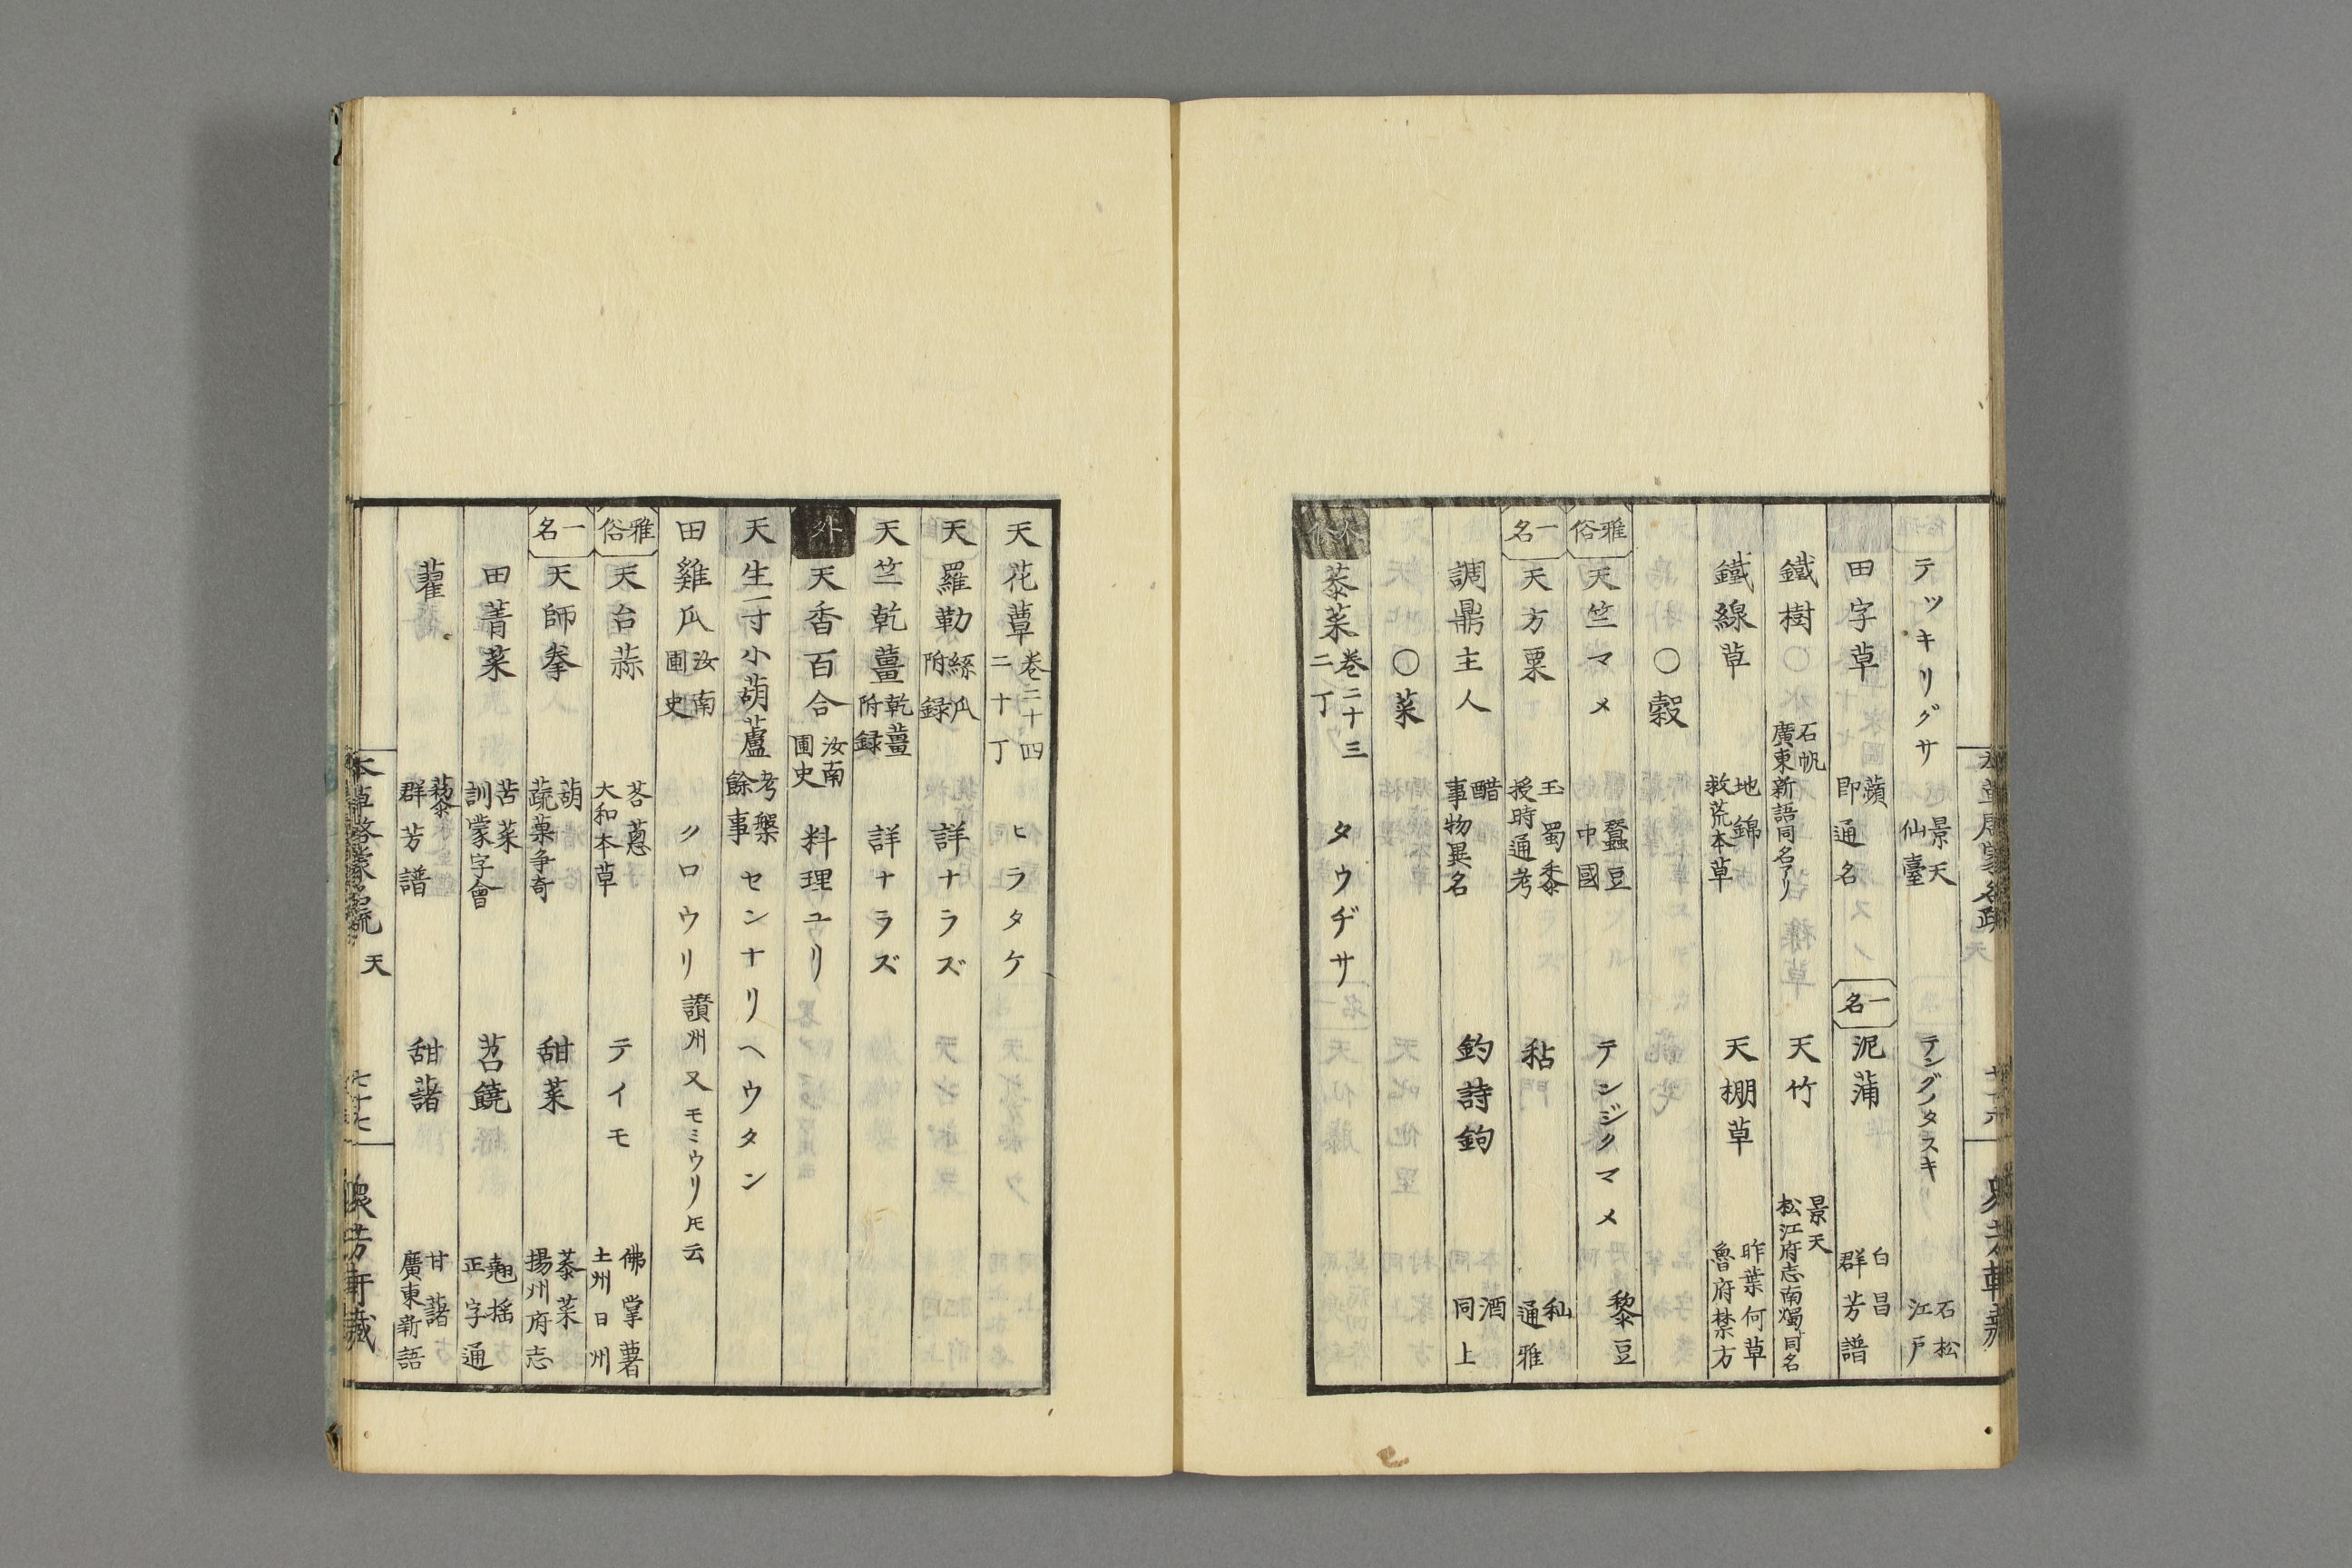 テツキリグサ 景天 仙臺 テングノタスキ 石松 江戸
田字草 蘋 即通名 一名 泥蒲 白昌 群芳譜
鐵樹 石帆 廣東新語同名アリ 天竹 景天 松江府志南燭同名
鐵線草 地錦 救荒本草 天棚草 昨葉何草 魯府禁方
〇穀
雅俗 天竺マメ 蠶豆 中國 テンジクマメ 黎豆
一名 天方粟 玉蜀黍 授時通考 秥 秈 通雅
調鼎主人 醋 事物異名 釣詩鉤 酒 同上
〇菜
菾菜 巻二十三 二丁 タウヂサ
天花蕈 巻二十四 二十丁 ヒラタケ
天羅勒 絲瓜 附録 詳ナラズ
天竺乾薑 乾薑 附録 詳ナラズ
外 天香百合 汝南圃史 料理ユリ
天生一寸小葫蘆 考槃餘事 センナリヘウタン
田雞瓜 汝南圃史 クロウリ 讃州又モミウリ𪜈云
雅俗 天台蒜 茖葱 大和本草 テイモ 佛掌薯 土州 日州
一名 天師拳 葫 蔬菓争奇 甜菜 菾菜 揚州府志
田菁菜 苦菜 訓蒙字會 苕饒 翹揺 正字通
藋 藜 群芳譜 甜藷 甘藷 廣東新語
本草啓蒙名疏 天 七十七 衆芳軒藏